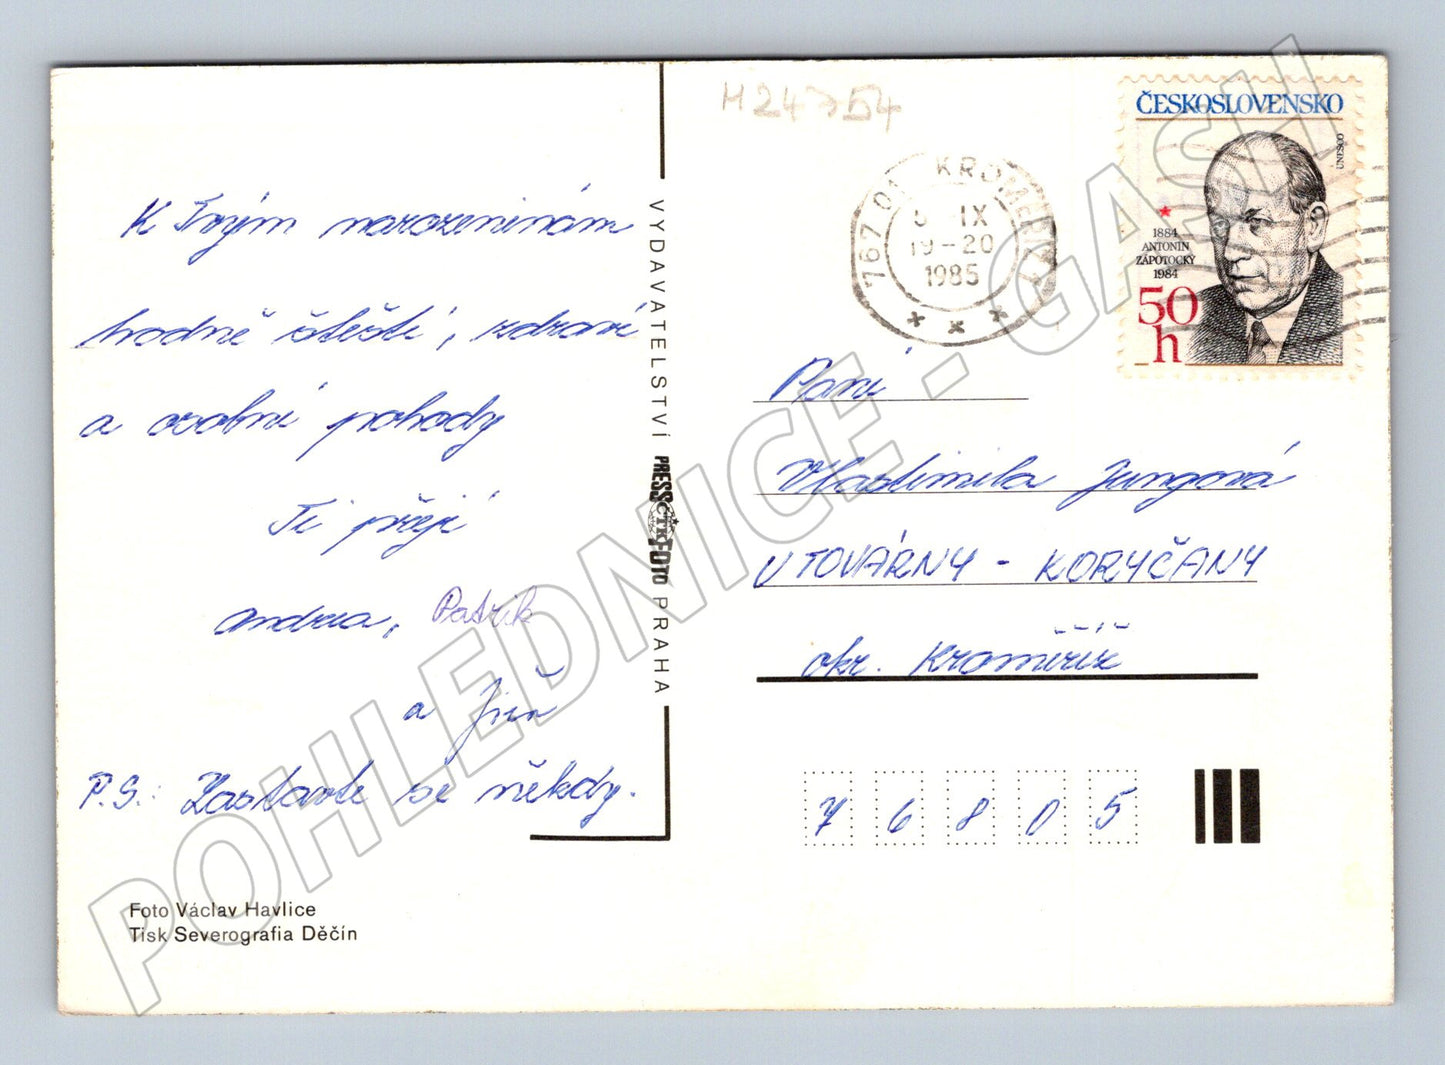 H24754
ČESKOSLOVENSKO
UNESCO
1884
ANTONÍN
ZÁPOTOCKÝ
1984
50
h
767 01 KROMĚŘÍŽ
IX
19-20
1985
K Tvým narozeninám
hodně štěstí, zdraví
a osobní pohody
Ti přejí
Andrea, Patrik
a Jiří
P.S.: Zastavte se někdy.
Foto Václav Havlice
Tisk Severografia Děčín
VYDAVATELSTVÍ PRESSFOTO PRAHA
ČTK
Paní
Vlastimila Jungová
U TOVÁRNY - KORYČANY
okr. Kroměříž
76805
POHLEDNICE - GASH